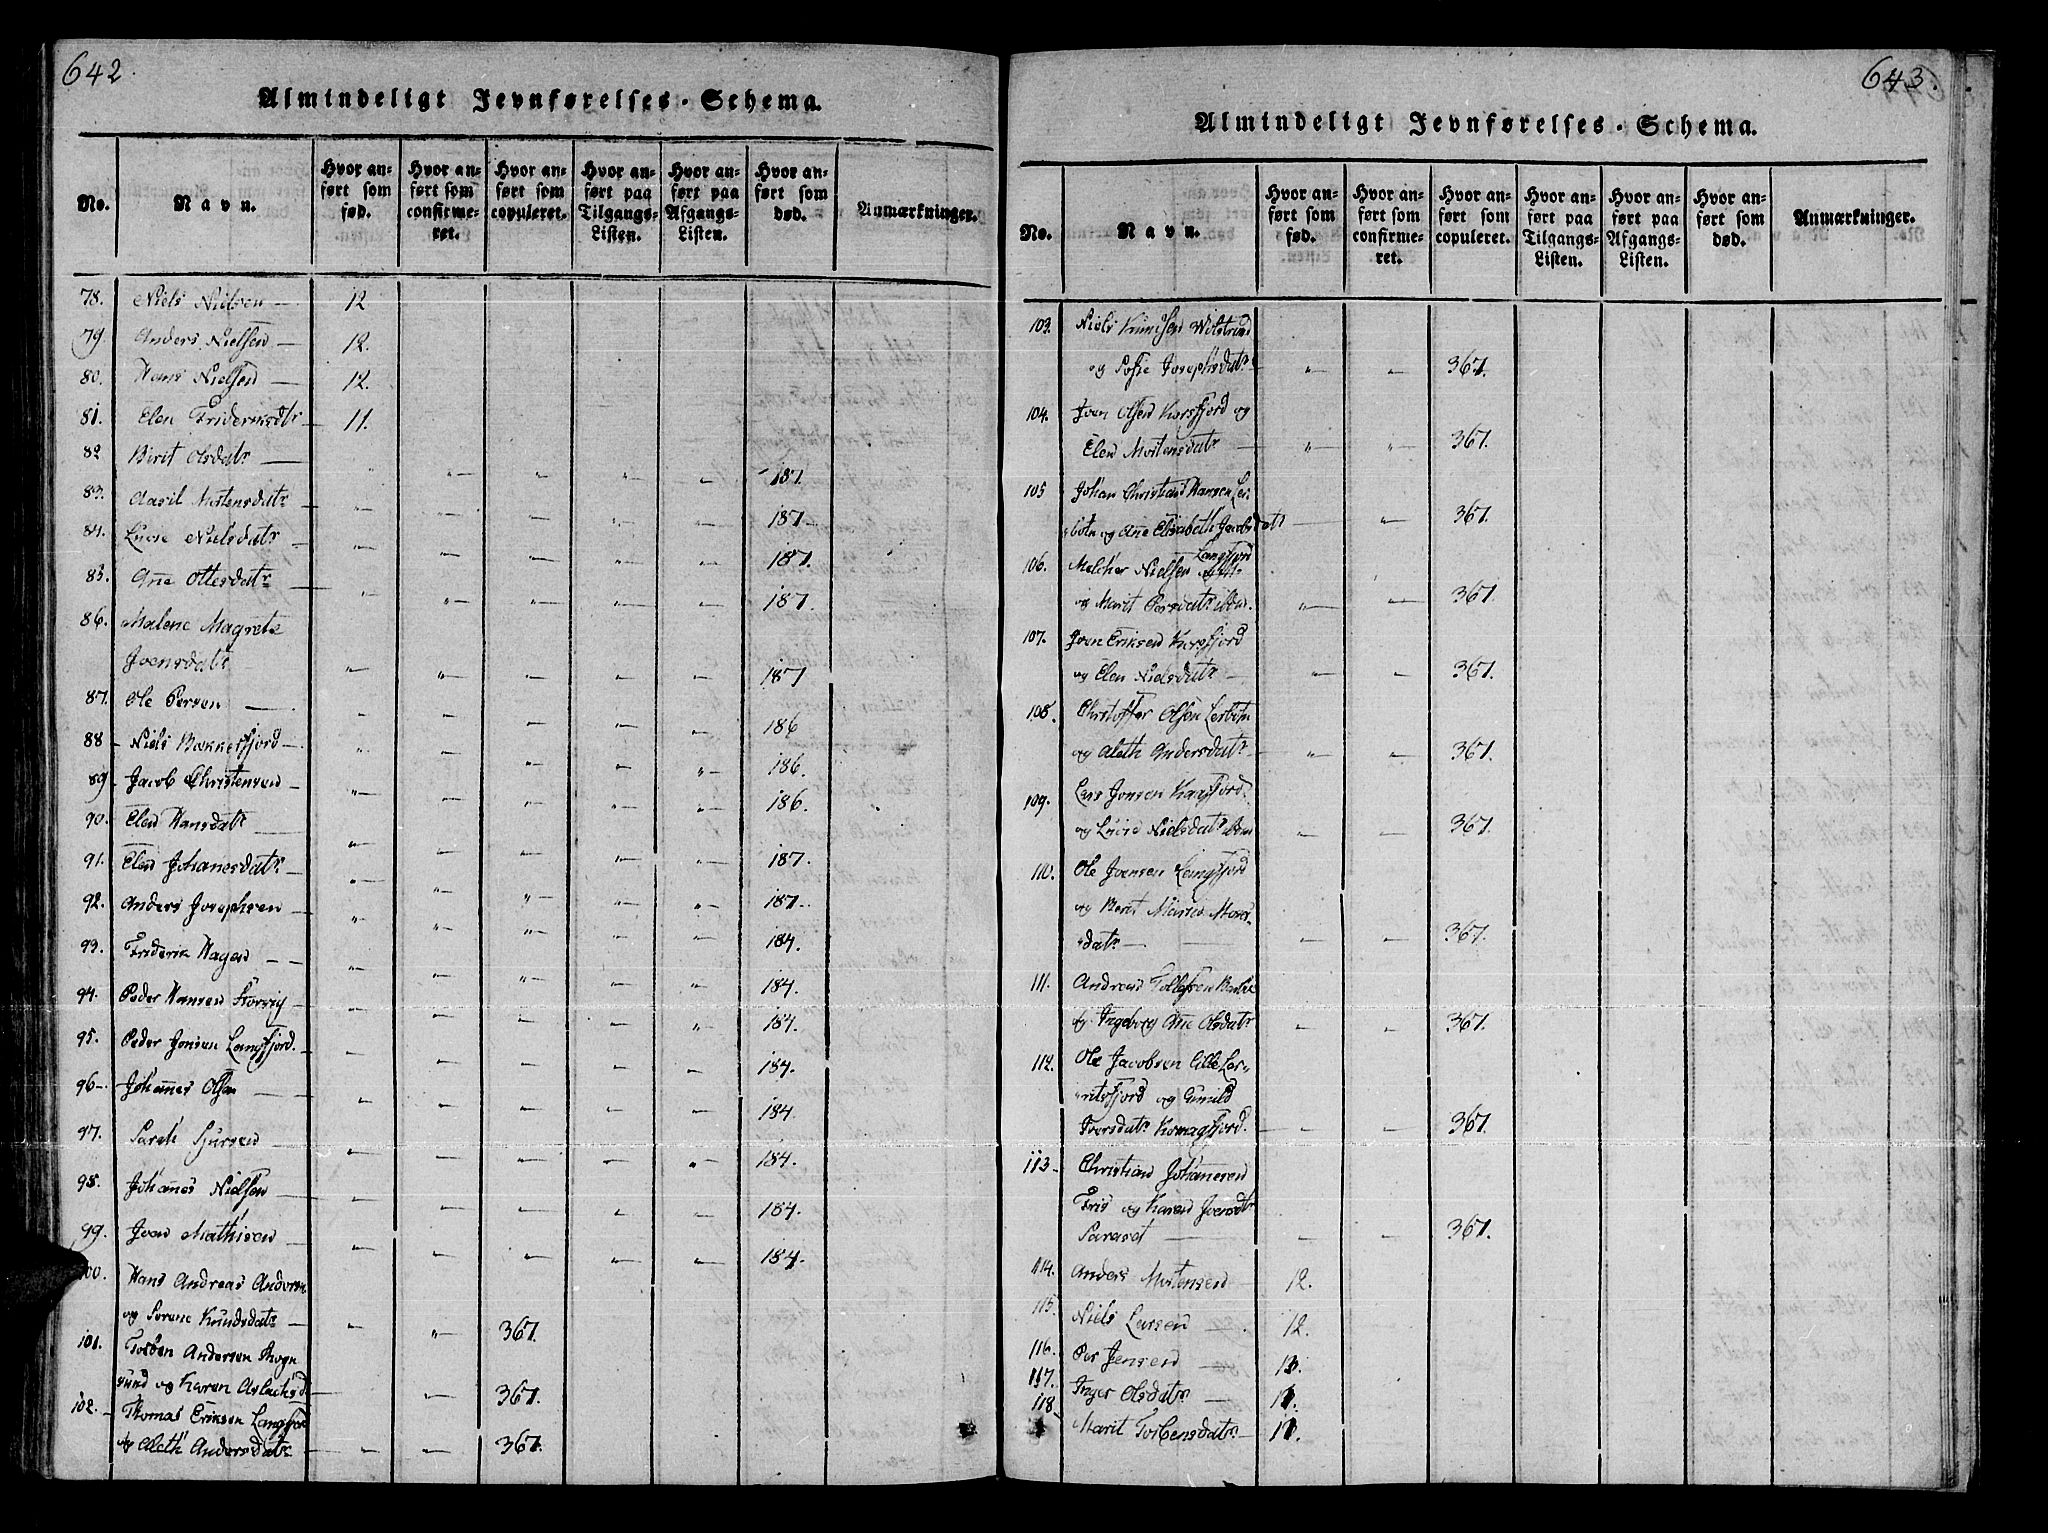 642.
Almindeligt Jevnførelses-Schema.
No. Navn. Hvor anført som fød. Hvor anført som confirmeret. Hvor anført som copuleret. Hvor anført paa Tilgangs-Listen. Hvor anført paa Afgangs-Listen. Hvor anført som død. Anmærkninger.
78. Niels Nielsen — 12
79. Anders Nielsen — 12.
80. Hans Nielsen — 12.
81. Elen Fridericksdatr — 11.
82 Birit Olsdatr — " " " " " 187.
83. Aasil Mortensdatr " " " " " 187.
84. Lucie Nielsdatr " " " " " 187.
85. Ane Ottesdatr — " " " " " 187.
86. Malene Magrete
Joensdatr — " " " " " 187
87. Ole Persen — " " " " " 186
88 - Niels Bekkerfjord — " " " " " 186.
89. Jacob Christensen — " " " " " 186.
90. Elen Hansdatr — " " " " " 187.
91. Elen Johanesdatr — " " " " " 187.
92. Anders Josephsen — " " " " " 184.
93. Friderik Hagen — — " " " " " 184.
94. Peder Hansen Storvig — " " " " " 184.
95. Peder Jonsen Langfjord. " " " " " 184.
96 - Johannes Olsen — " " " " " 184.
97. Sarah Sjursen — " " " " " 184.
98. Johanes Nielsen — " " " " " 184.
99. Joen Mathisen — " " " " " 184.
100. Hans Andreas Andersen
og Sorene Knudsdatr — " " 367.
101. Torben Andersen Rogn
sund og Karen Aslachsd — " 367.
102. - Thomas Eriksen Langfjord
og Aleth Andersdatr — " " 367.
643.
Almindeligt Jevnførelses-Schema.
No. Navn. Hvor anført som fød. Hvor anført som confirmeret. Hvor anført som copuleret. Hvor anført paa Tilgangs-Listen. Hvor anført paa Afgangs-Listen. Hvor anført som død. Anmærkninger.
103. Niels Knudsen
og Sofie Josephsdatr — " " 367.
104. Joen Olsen Korsfjord og
Elen Mortensdatr — " " 367.
105 Johan Christian Hansen Ler
botn og Ane Elisabeth Jacobsdatr — " 367.
106. Melcher Nielsen Langfjord
og Marit Persdatr ibdm. " " 367.
107. Joen Eriksen Korsfjord
og Elen Nielsdatr — " " 367.
108. Christoffer Olsen Lerbotn
og Aleth Andersdatr — " " 367.
109. Lars Jonsen Kaafjord
og Lucie Nielsdatr ibdm " " 367.
110. Ole Joensen Langfjord
og Berit Marie
datr — — " " 367.
111. Andreas Tollefsen
og Ingeborg Ane Olsdatr " " 367.
112. Ole Jacobsen Lille Ler-
ritsfjord og Gunild
Iversdatr Komagfjord. — " 367.
113 - Christian Johanesen
Fris og Karen Joensdtr
— " " 367.
114. Anders Mortensen — 12.
115. Niels Larsen — 12.
116. Per Jensen —
117. Inger Olsdatr —
118. Marit Torbensdatr —